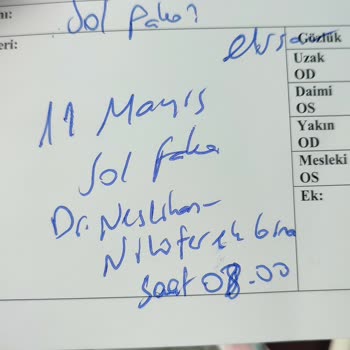 Sol Fako?
Gözlük
Uzak
OD
Daimi
OS
Yakın
OD
Mesleki
OS
Ek:
11 Mayıs
Sol fako
Dr. Neslihan-
Nilüfer ek bina
saat 08.00